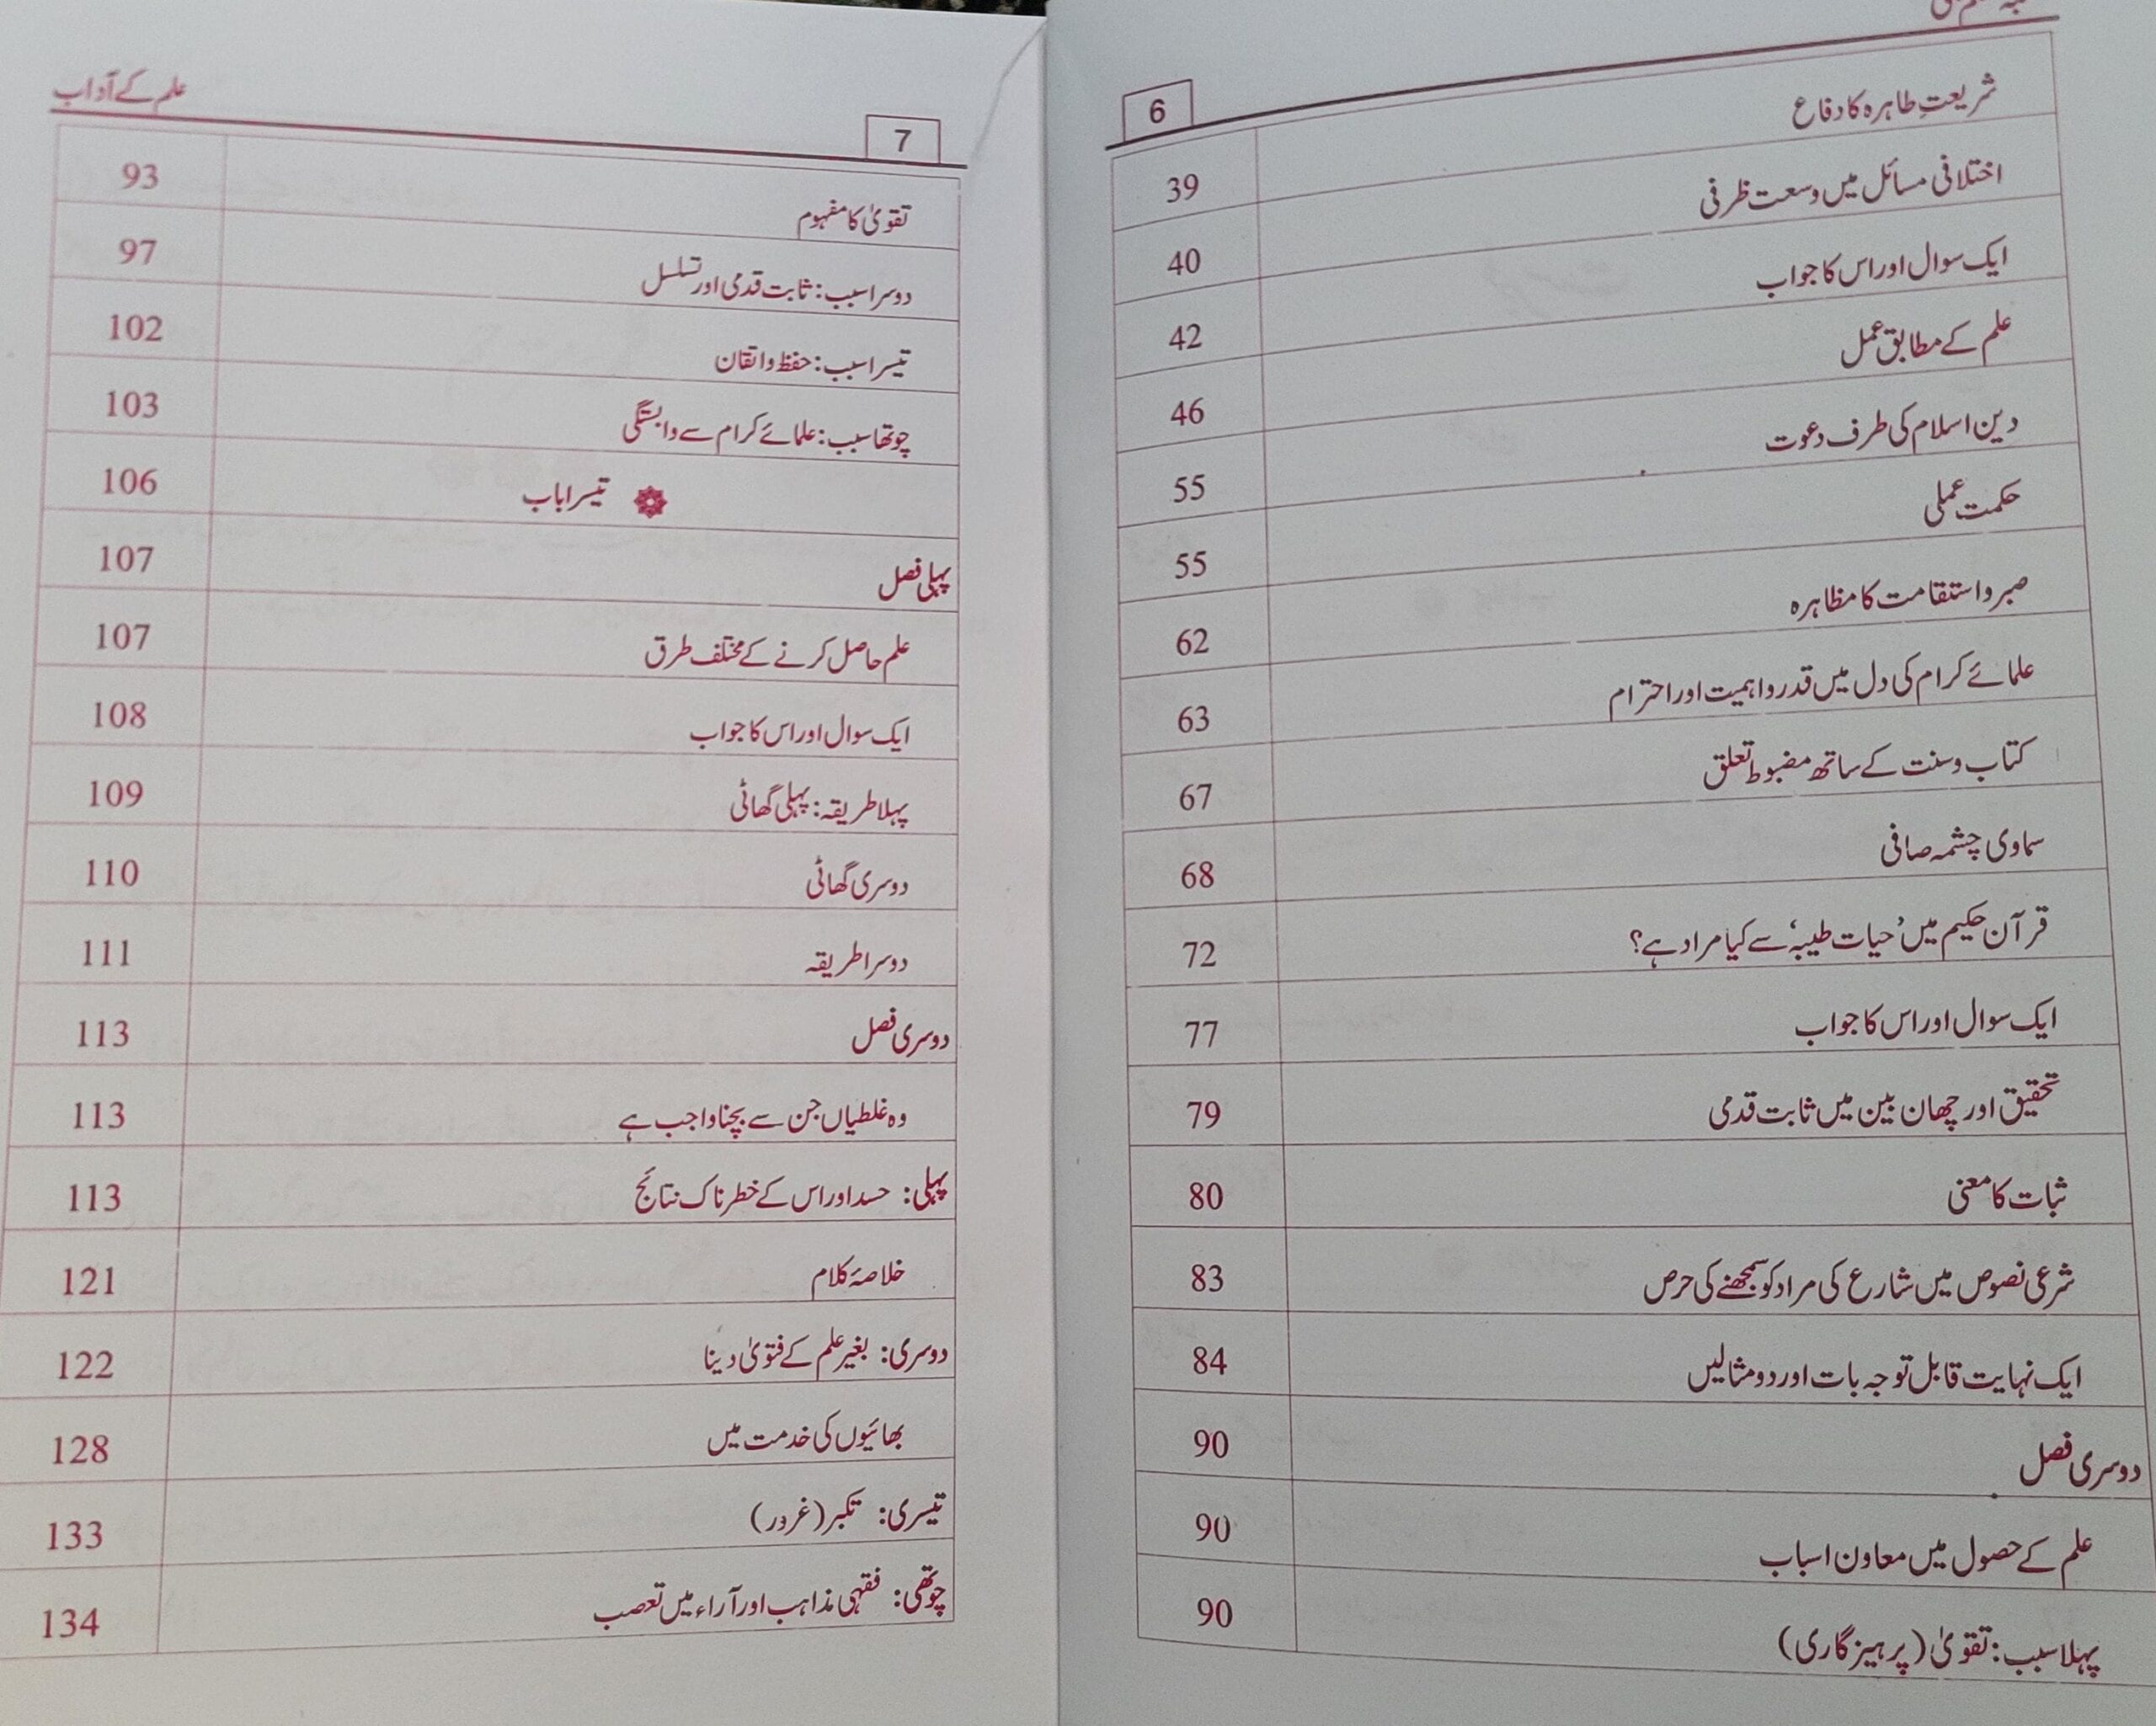 6
شریعتِ طاہرہ کا دفاع 39
اختلافی مسائل میں وسعت ظرفی 40
ایک سوال اور اس کا جواب 42
علم کے مطابق عمل 46
دین اسلام کی طرف دعوت 55
حکمت عملی 55
صبر و استقامت کا مظاہرہ 62
علمائے کرام کی دل میں قدر و اہمیت اور احترام 63
کتاب و سنت کے ساتھ مضبوط تعلق 67
سماوی چشمہ صافی 68
قرآن حکیم میں ’حیات طیبہ‘ سے کیا مراد ہے؟ 72
ایک سوال اور اس کا جواب 77
تحقیق اور چھان بین میں ثابت قدمی 79
ثبات کا معنی 80
شرعی نصوص میں شارع کی مراد کو سمجھنے کی حرص 83
ایک نہایت قابل توجہ بات اور دو مثالیں 84
دوسری فصل 90
علم کے حصول میں معاون اسباب 90
پہلا سبب: تقویٰ (پرہیزگاری) 90
علم کے آداب 7
تقویٰ کا مفہوم 93
دوسرا سبب: ثابت قدمی اور تسلسل 97
تیسرا سبب: حفظ و اتقان 102
چوتھا سبب: علمائے کرام سے وابستگی 103
تیسرا باب 106
پہلی فصل 107
علم حاصل کرنے کے مختلف طرق 107
ایک سوال اور اس کا جواب 108
پہلا طریقہ: پہلی گھاٹی 109
دوسری گھاٹی 110
دوسرا طریقہ 111
دوسری فصل 113
وہ غلطیاں جن سے بچنا واجب ہے 113
پہلی: حسد اور اس کے خطرناک نتائج 113
خلاصۂ کلام 121
دوسری: بغیر علم کے فتویٰ دینا 122
بھائیوں کی خدمت میں 128
تیسری: تکبر (غرور) 133
چوتھی: فقہی مذاہب اور آراء میں تعصب 134